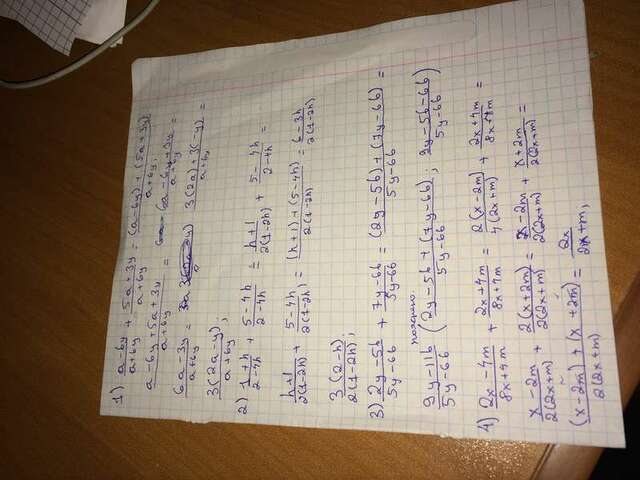 1) (a-6y)/(a+6y) + (5a+3y)/(a+6y) = ((a-6y)+(5a+3y))/(a+6y) ;
(a-6y+5a+3y)/(a+6y) = (6a-6y+3y)/(a+6y) =
(6a-3y)/(a+6y) = (3(2a)+3(-y))/(a+6y) =
(3(2a-y))/(a+6y) ;
2) (1+h)/(2-4h) + (5-4h)/(2-4h) = (h+1)/(2(1-2h)) + (5-4h)/(2-4h) =
(h+1)/(2(1-2h)) + (5-4h)/(2(1-2h)) = ((h+1)+(5-4h))/(2(1-2h)) = (6-3h)/(2(1-2h))
(3(2-h))/(2(1-2h)) ;
3) (2y-5b)/(5y-6b) + (7y-6b)/(5y-6b) = ((2y-5b)+(7y-6b))/(5y-6b) =
(9y-11b)/(5y-6b) ((2y-5b+(7y-6b))/(5y-6b) ; (9y-5b-6b)/(5y-6b))
4) (2x-4m)/(8x+4m) + (2x+4m)/(8x+4m) = (2(x-2m))/(4(2x+m)) + (2x+4m)/(8x+4m) =
(x-2m)/(2(2x+m)) + (2(x+2m))/(2(2x+m)) = (x-2m)/(2(2x+m)) + (x+2m)/(2(2x+m)) =
((x-2m)+(x+2m))/(2(2x+m)) = 2x/(2x+m) ,